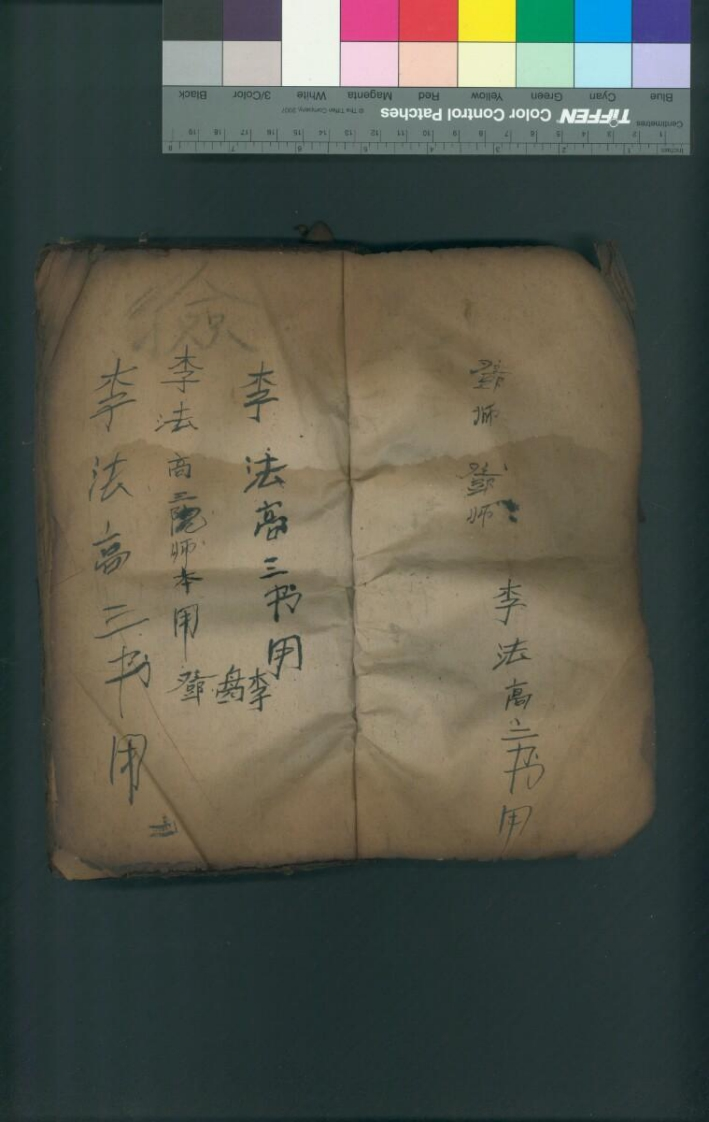 Blue Cyan Green Yellow Red Magenta White 3/Color Black
Centimetres
TIFFEN Color Control Patches
© The Tiffen Company, 2007
Inches
师
师
李法高三书用
李法高三书用
李法高三院师本用
李法高三书用
李